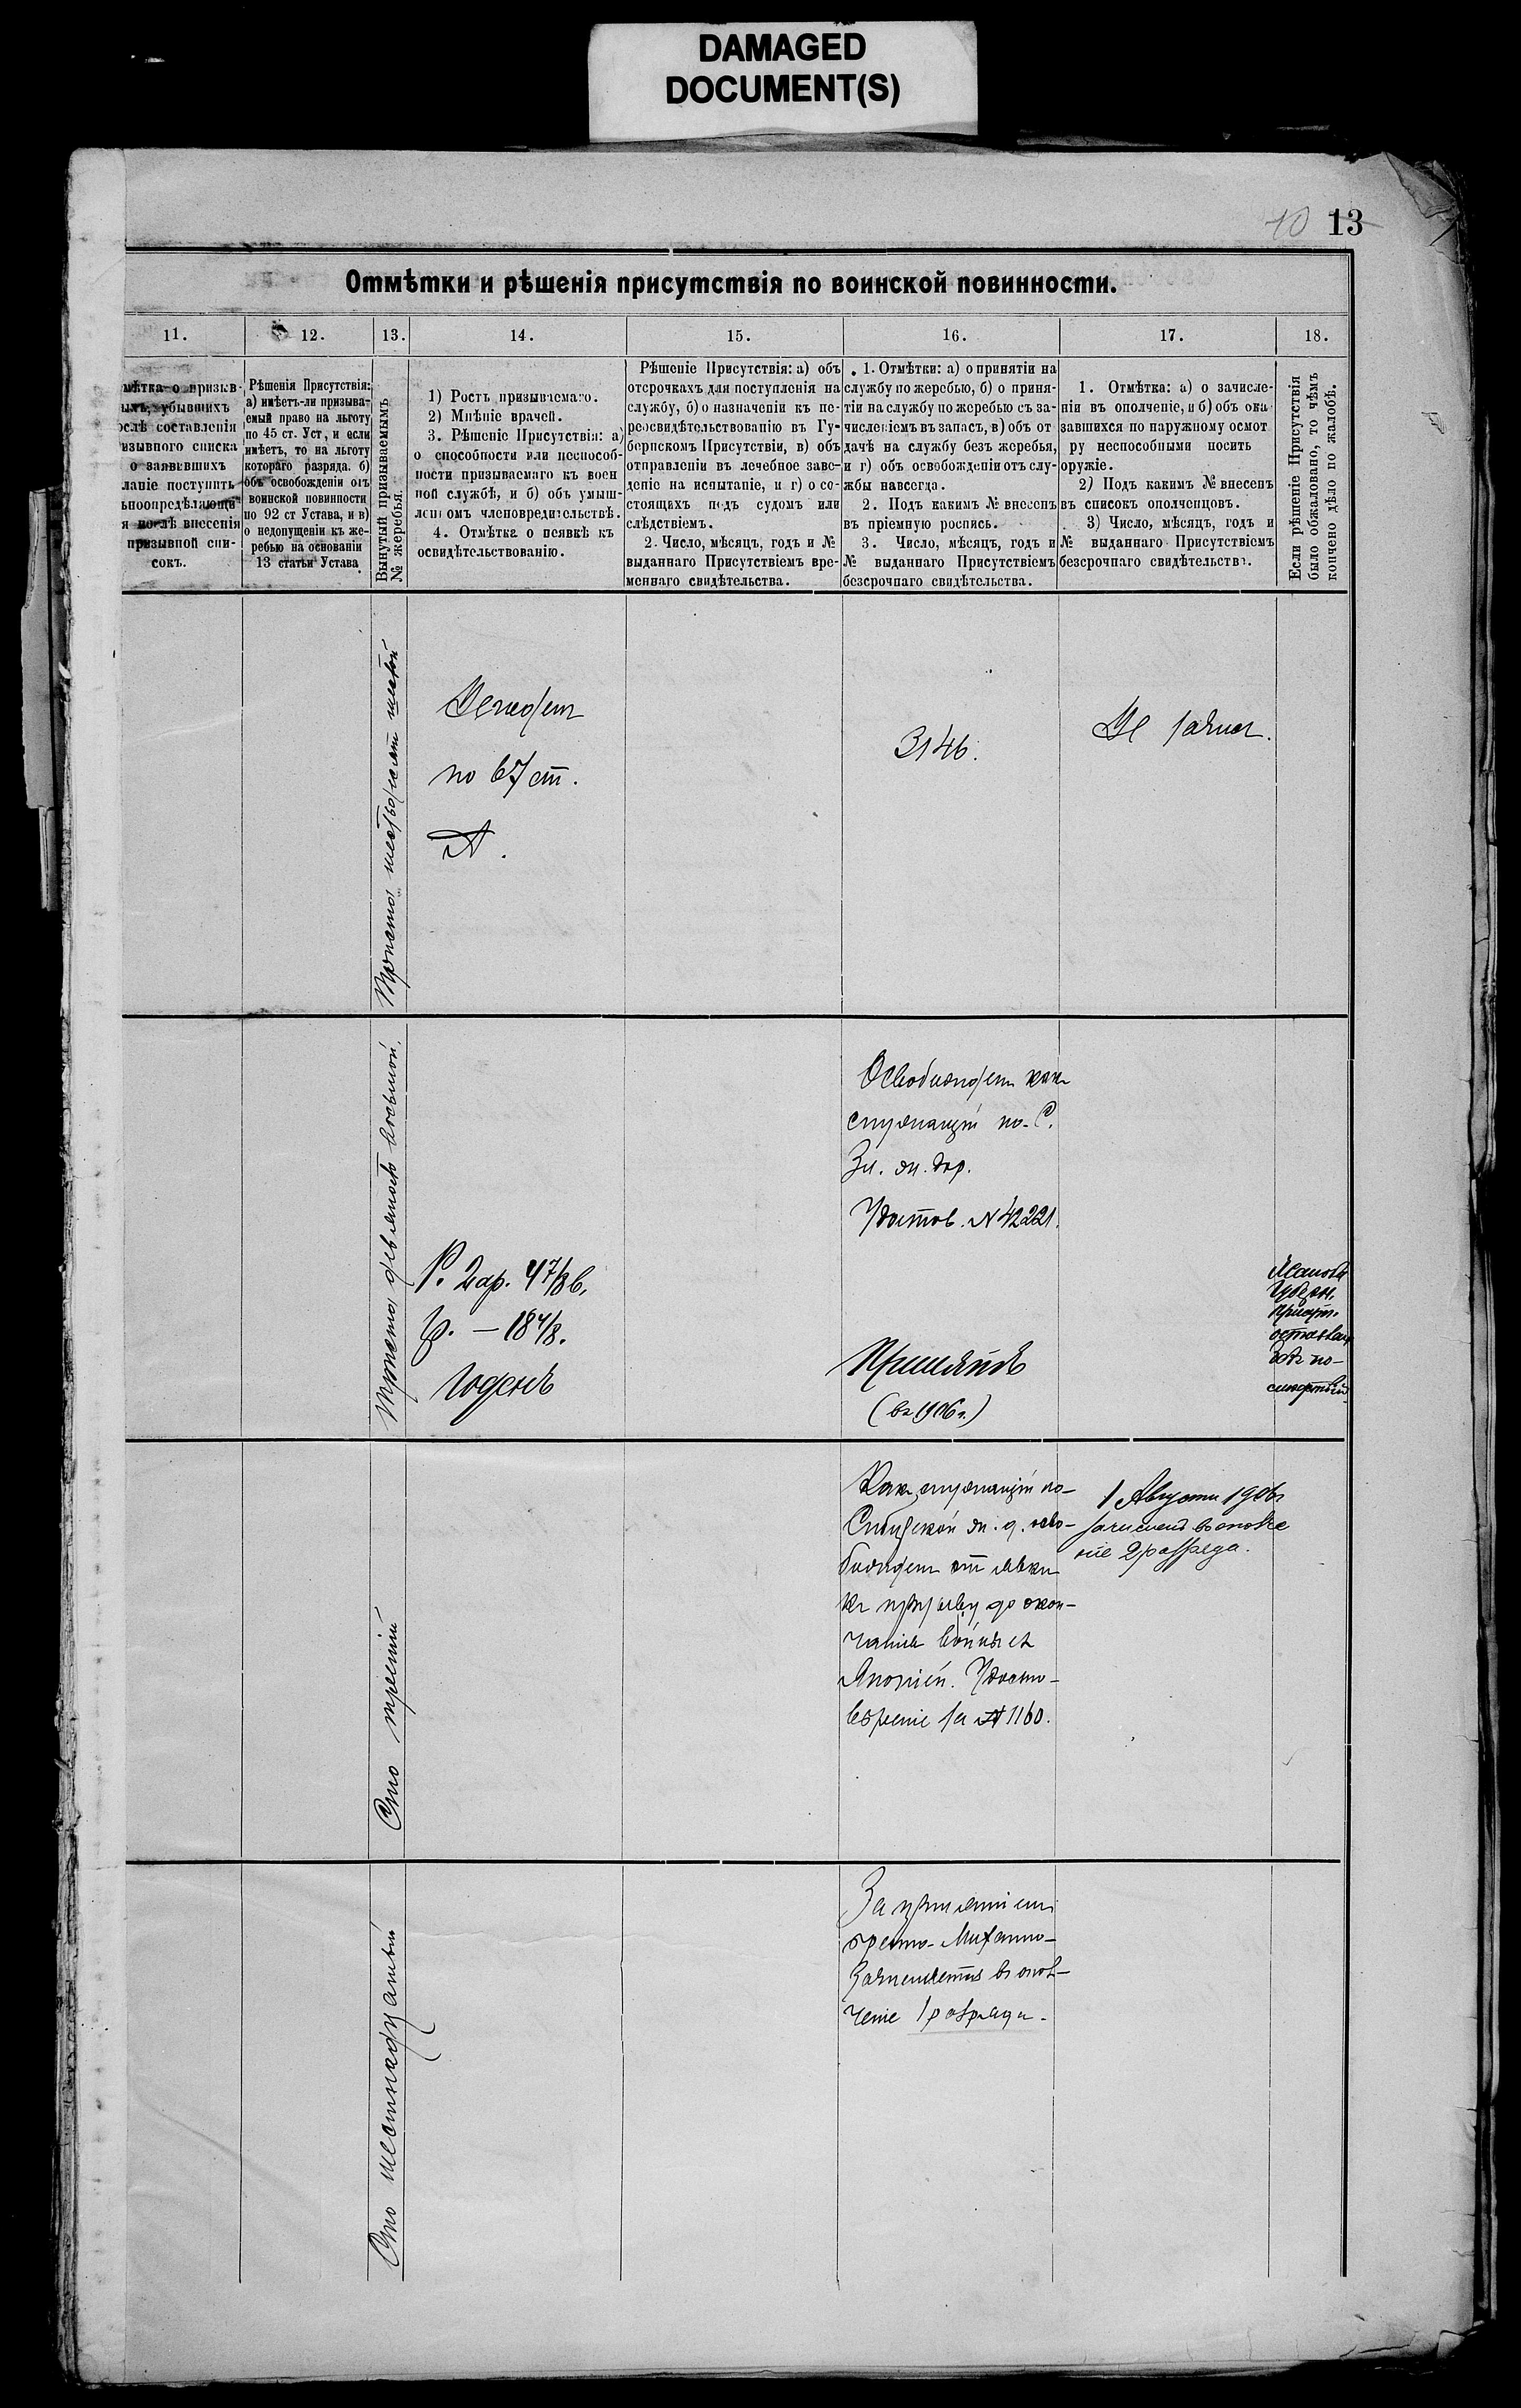 DAMAGED
DOCUMENT(S)
10 13
Отмѣтки и рѣшенія присутствія по воинской повинности.
11.
12.
13.
14.
15.
16.
17.
18.
мѣтка о призыв-
ыхъ, убывшихъ
ослѣ составленія
изывного списка
о заявившихъ
ланіе поступить
ьноопредѣляющи
я послѣ внесенія
призывной спи-
сокъ.
Рѣшенія Присутствія:
а) имѣетъ-ли призыва-
емый право на льготу
по 45 ст. Уст, и если
имѣетъ, то на льготу
котораго разряда. б)
объ освобожденіи отъ
воинской повинности
по 92 ст Устава, и в)
о недопущеніи къ же-
ребью на основаніи
13 статьи Устава
Вынутый призываемымъ
№ жеребья.
1) Ростъ призываемаго.
2) Мнѣніе врачей.
3. Рѣшеніе Присутствія: а)
о способности или неспособ-
ности призываемаго къ воен
ной службѣ, и б) объ умыш-
леномъ членовредительствѣ.
4. Отмѣтка о неявкѣ къ
освидѣтельствованію.
Рѣшеніе Присутствія: а) объ
отсрочкахъ для поступленія на
службу, б) о назначеніи къ пе-
реосвидѣтельствованію въ Гу-
бернскомъ Присутствіи, в) объ
отправленіи въ лечебное заве-
деніе на испытаніе, и г) о со-
стоящихъ подъ судомъ или
слѣдствіемъ.
2. Число, мѣсяцъ, годъ и №
выданнаго Присутствіемъ вре-
меннаго свидѣтельства.
1. Отмѣтки: а) о принятіи на
службу по жеребью, б) о приня-
тіи на службу по жеребью съ за-
численіемъ въ запасъ, в) объ от
дачѣ на службу безъ жеребья,
и г) объ освобожденіи отъ слу-
жбы навсегда.
2. Подъ какимъ № внесенъ
въ пріемную роспись.
3. Число, мѣсяцъ, годъ и
№ выданнаго Присутствіемъ
безсрочнаго свидѣтельства.
1. Отмѣтка: а) о зачисле-
ніи въ ополченіе, и б) объ ока
завшихся по наружному осмот
ру неспособными носить
оружіе.
2) Подъ какимъ № внесенъ
въ списокъ ополченцовъ.
3) Число, мѣсяцъ, годъ и
№ выданнаго Присутствіемъ
безсрочнаго свидѣтельства.
Если рѣшеніе Присутствія
было обжаловано, то чѣмъ
кончено дѣло по жалобѣ.
Триста шестьдесят шестой
по 67 ст.
А.
3146.
Не зачисл.
Триста девяносто восьмой.
Освобожденъ какъ
служащій по С.
Зл. ж. дор.
Удостов. № 42221.
Р. 2 ар. 4 7/8 в.
– 18 4/8.
Годенъ
Принятъ
(въ 1906 г.)
Жалоба
Губерн.
присут.
оставлена
безъ по-
слѣдствій
Сто третій
Какъ служащій по
Сибирской ж. д. осво-
божденъ отъ явки
къ призыву до окон-
чанія войны съ
Японіей. Удосто-
вѣреніе за № 1160.
1 Августа 1906 г
зачисленъ въ ополче
ніе 2 разряда.
Сто шестнадцатый
За принятіемъ
брата Михаила
зачисляется въ опол-
ченіе 1 разряда.